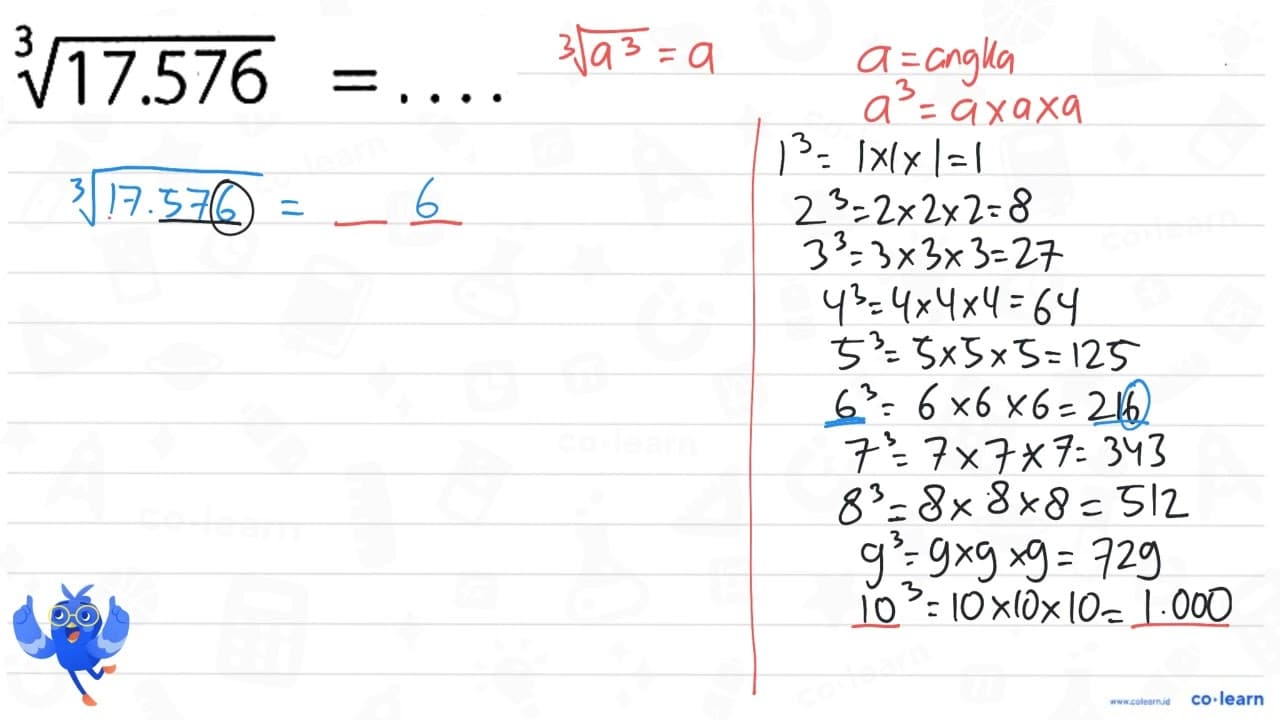 ∛17.576 = ....
∛a³ = a
a = angka
a³ = a x a x a
∛17.576 = _ 6
1³ = 1 x 1 x 1 = 1
2³ = 2 x 2 x 2 = 8
3³ = 3 x 3 x 3 = 27
4³ = 4 x 4 x 4 = 64
5³ = 5 x 5 x 5 = 125
6³ = 6 x 6 x 6 = 216
7³ = 7 x 7 x 7 = 343
8³ = 8 x 8 x 8 = 512
9³ = 9 x 9 x 9 = 729
10³ = 10 x 10 x 10 = 1.000
www.colearn.id co·learn